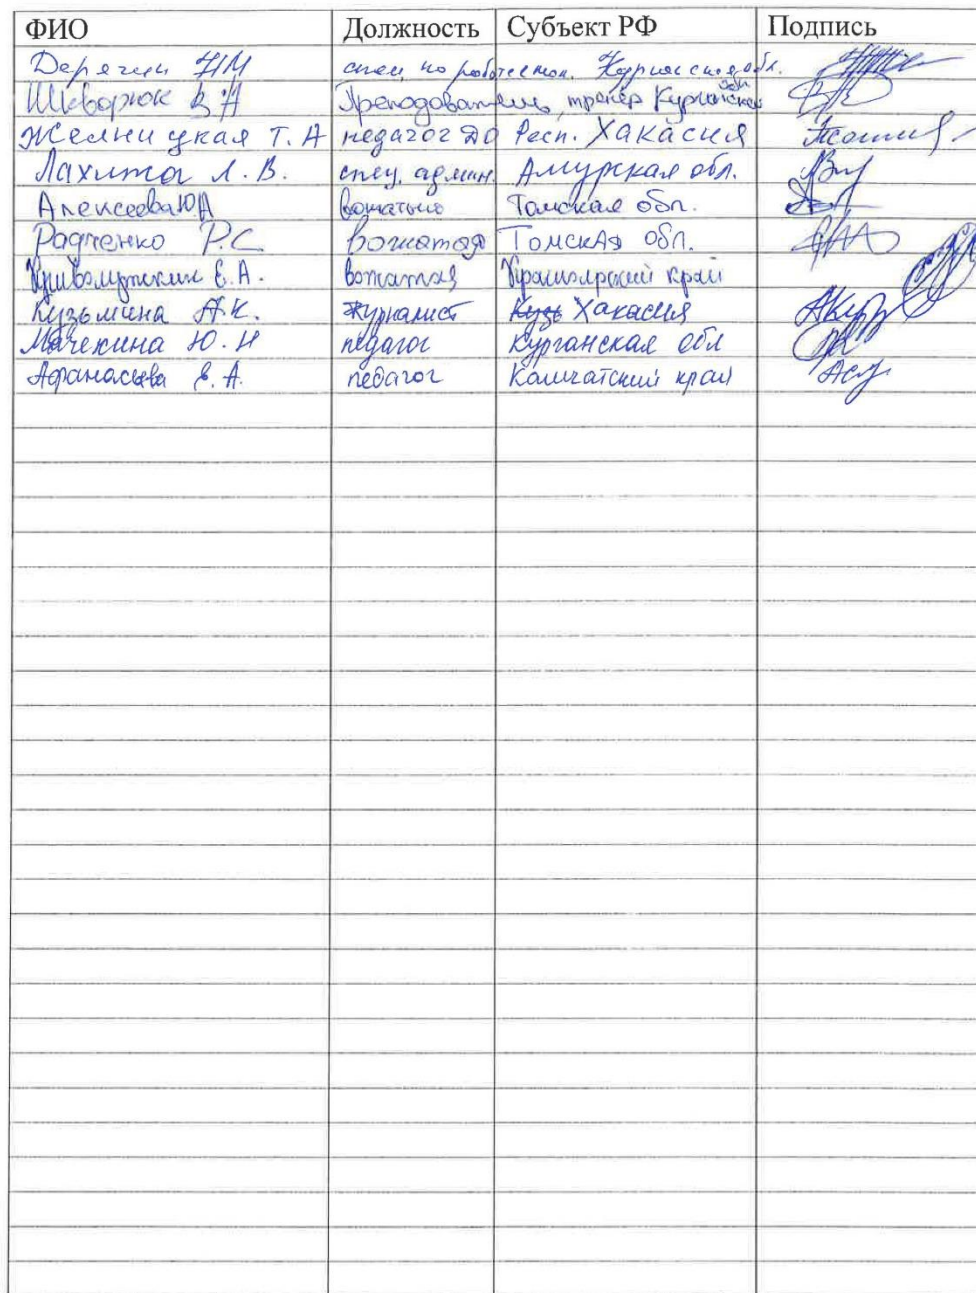 ФИО Должность Субъект РФ Подпись
Дерягин НМ спец по работе с мол. Курганская обл.
Шкворюк В А Преподователь, тренер Курганская обл
Желницкая Т. А педагог ДО Респ. Хакасия
Лахитов Л. В. спец. админ. Амурская обл.
Алексеева ЮА вожатый Томская обл.
Радченко Р.С. вожатая Томская обл.
Е.А. вожатая Красноярский край
Кузьмина А.К. журналист Хакасия
Мачехина Ю. Н педагог Курганская обл
Афанасьева Е. А. педагог Камчатский край